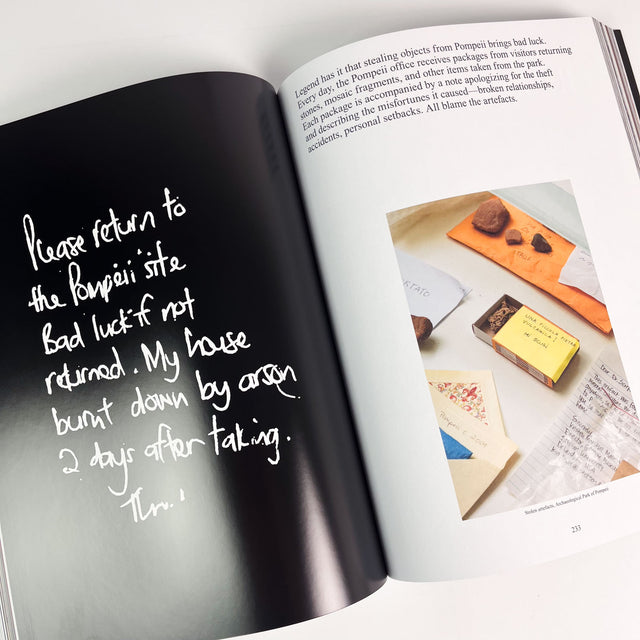 Please return to
the Pompeii site
Bad luck if not
returned. My house
burnt down by arson
2 days after taking.
Legend has it that stealing objects from Pompeii brings bad luck.
Every day, the Pompeii office receives packages from visitors returning
stones, mosaic fragments, and other items taken from the park.
Each package is accompanied by a note apologizing for the theft
and describing the misfortunes it caused—broken relationships,
accidents, personal setbacks. All blame the artefacts.
TATO
UNA PICCOLA PIETRA
VULCANICA!
Pompeii
Stolen artefacts, Archaeological Park of Pompeii
233